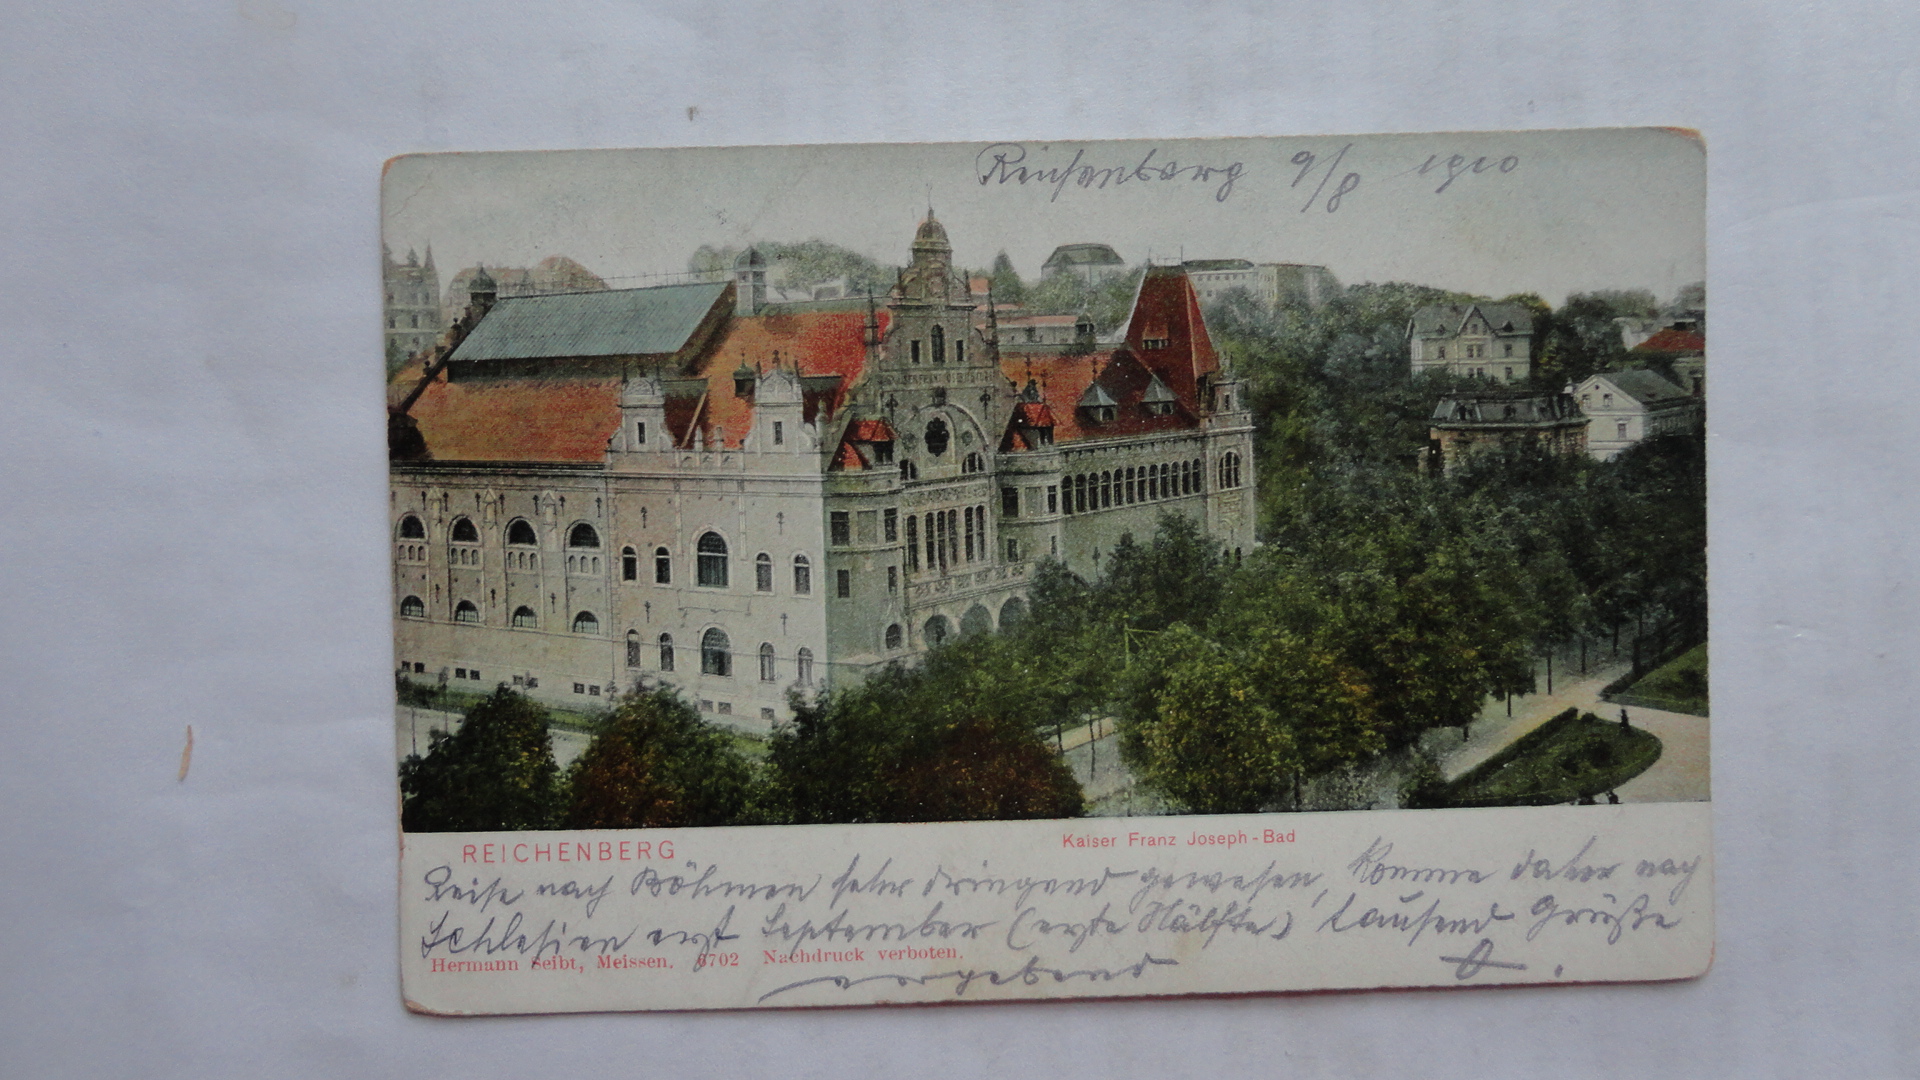 Reichenberg 9/8 1910
REICHENBERG
Kaiser Franz Joseph-Bad
Reise nach Böhmen sehr dringend gewesen, komme daher nach
Schlesien erst September (erste Hälfte) tausend Grüße
Hermann Seibt, Meissen. 6702 Nachdruck verboten.